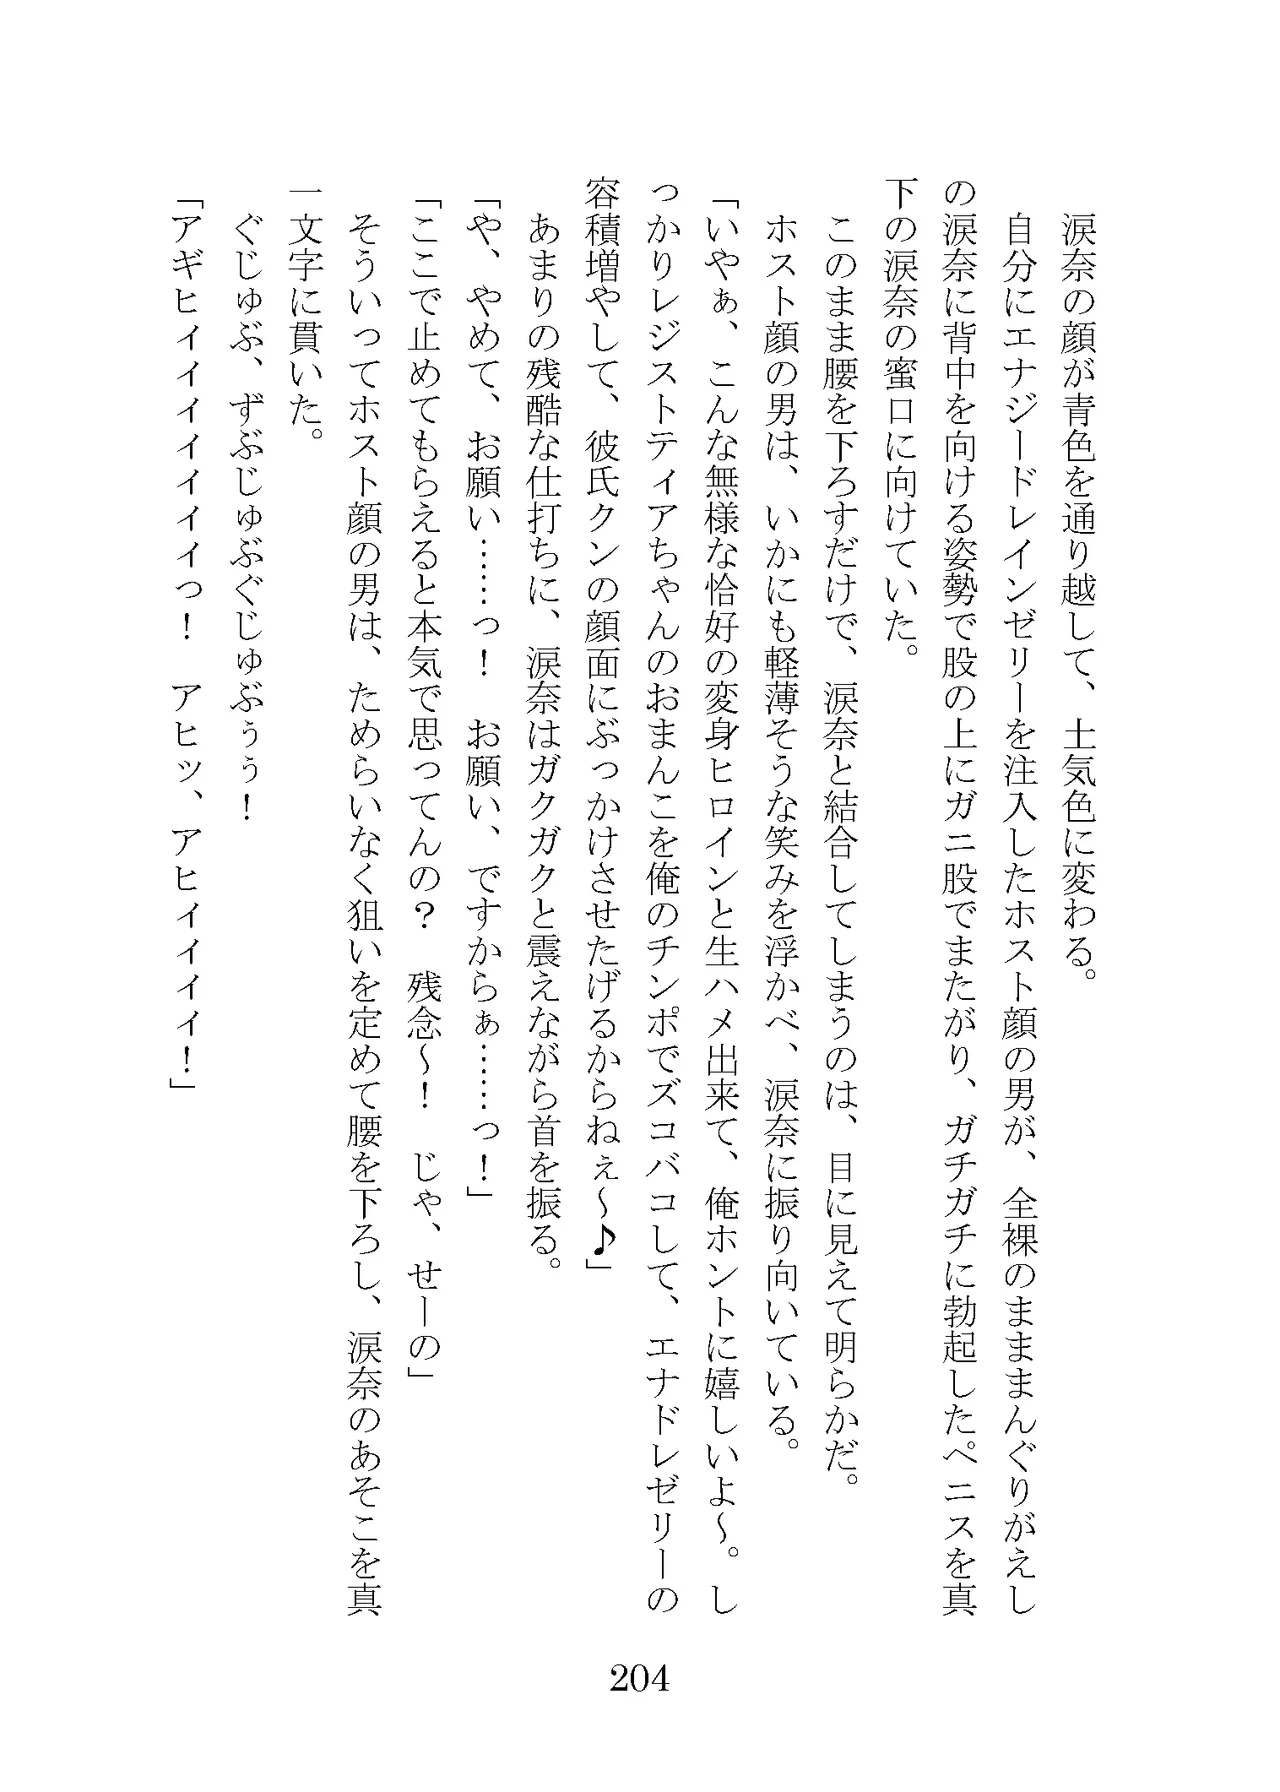 涙奈の顔が青色を通り越して、土気色に変わる。
自分にエナジードレインゼリーを注入したホスト顔の男が、全裸のまままんぐりがえし
の涙奈に背中を向ける姿勢で股の上にガニ股でまたがり、ガチガチに勃起したペニスを真
下の涙奈の蜜口に向けていた。
このまま腰を下ろすだけで、涙奈と結合してしまうのは、目に見えて明らかだ。
ホスト顔の男は、いかにも軽薄そうな笑みを浮かべ、涙奈に振り向いている。
「いやぁ、こんな無様な恰好の変身ヒロインと生ハメ出来て、俺ホントに嬉しいよ～。し
っかりレジストティアちゃんのおまんこを俺のチンポでズコバコして、エナドレゼリーの
容積増やして、彼氏クンの顔面にぶっかけさせたげるからねぇ～♪」
あまりの残酷な仕打ちに、涙奈はガクガクと震えながら首を振る。
「や、やめて、お願い……っ！　お願い、ですからぁ……っ！」
「ここで止めてもらえると本気で思ってんの？　残念～！　じゃ、せーの」
そういってホスト顔の男は、ためらいなく狙いを定めて腰を下ろし、涙奈のあそこを真
一文字に貫いた。
ぐじゅぶ、ずぶじゅぶぐじゅぶぅぅ！
「アギヒィィィィィィィっ！　アヒッ、アヒィィィィ！」
204